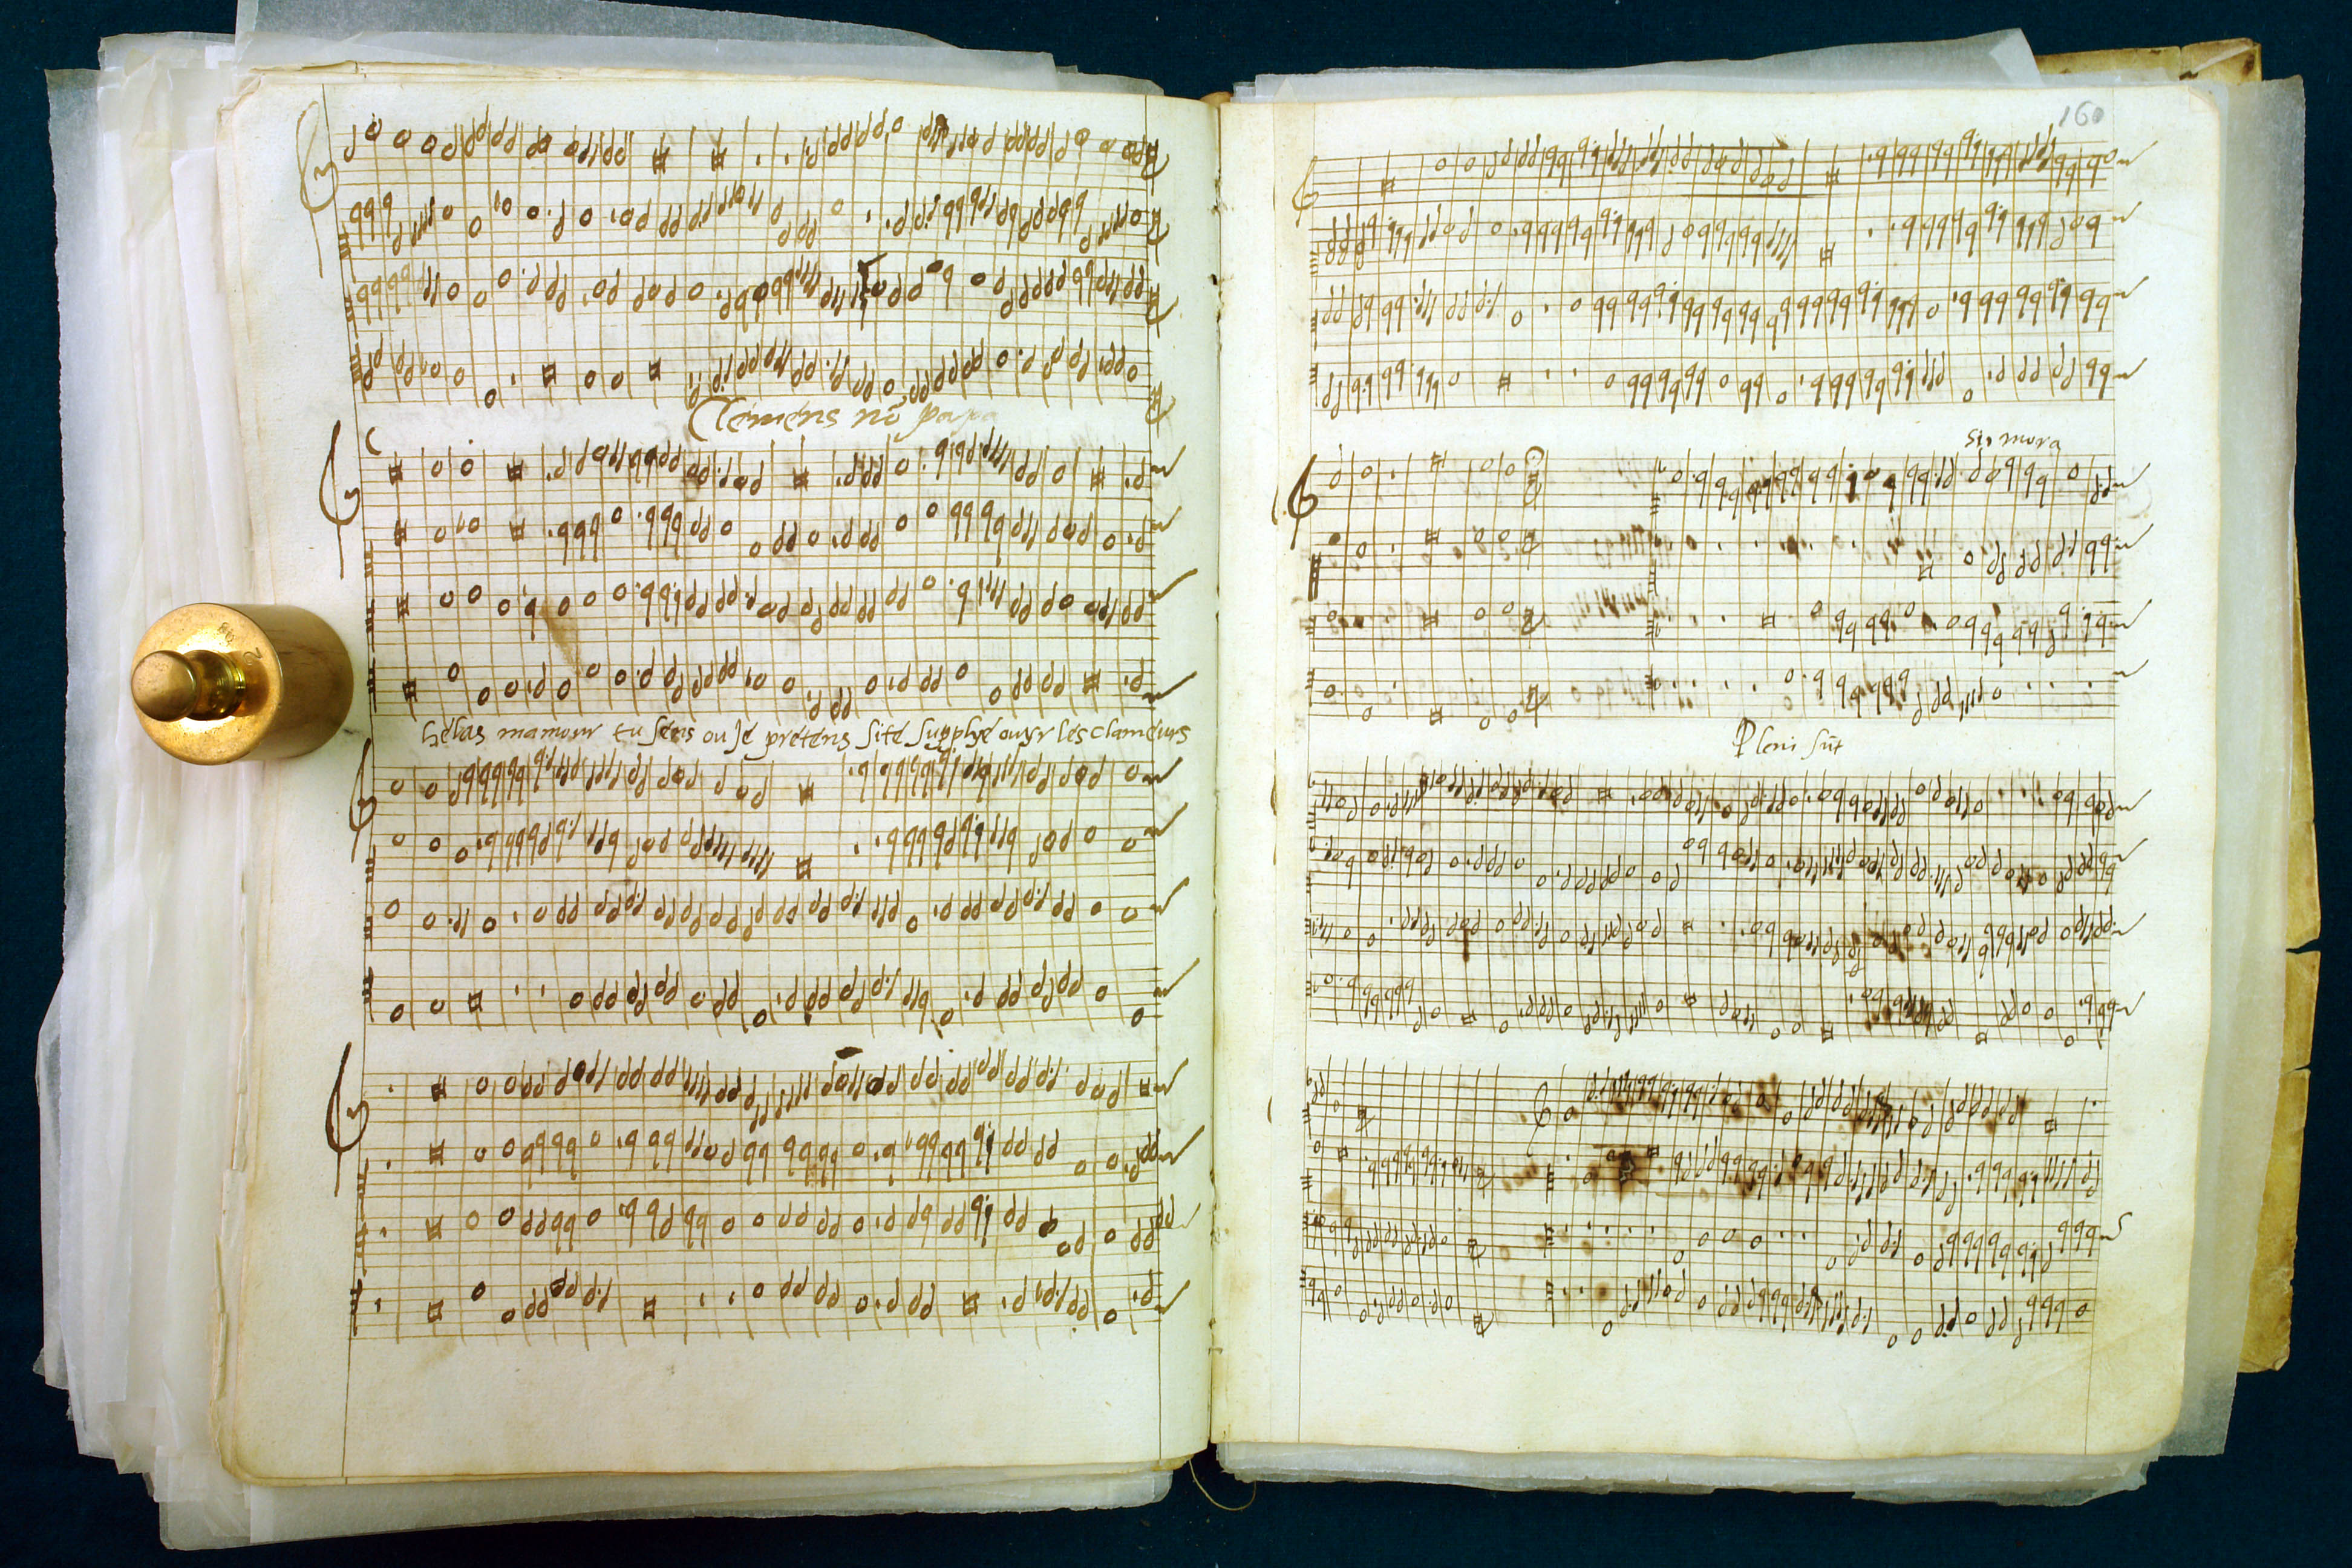 Clemens nō papa
helas mamour tu sens ou Je pretens site supplye ouyr les clameurs
160
sit mora
Pleni sūt